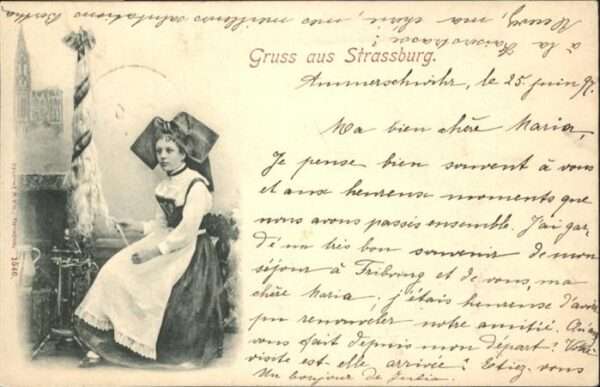 Gruss aus Strassburg.
Ammerschwihr, le 25 juin 97.
Ma bien chère Maria,
Je pense bien souvent à vous
et aux heureux moments que
nous avons passés ensemble. J'ai gar-
dé un très bon souvenir de mon
séjour à Fribourg et de vous, ma
chère Maria; j'étais heureuse d'avoir
pu renouveler notre amitié. Qu'avez
vous fait depuis mon départ? Votre
visite est elle arrivée? Etiez-vous
à la
?
ma chérie, mes meilleures salutations Bertha
Un bonjour de Julia.
1546.